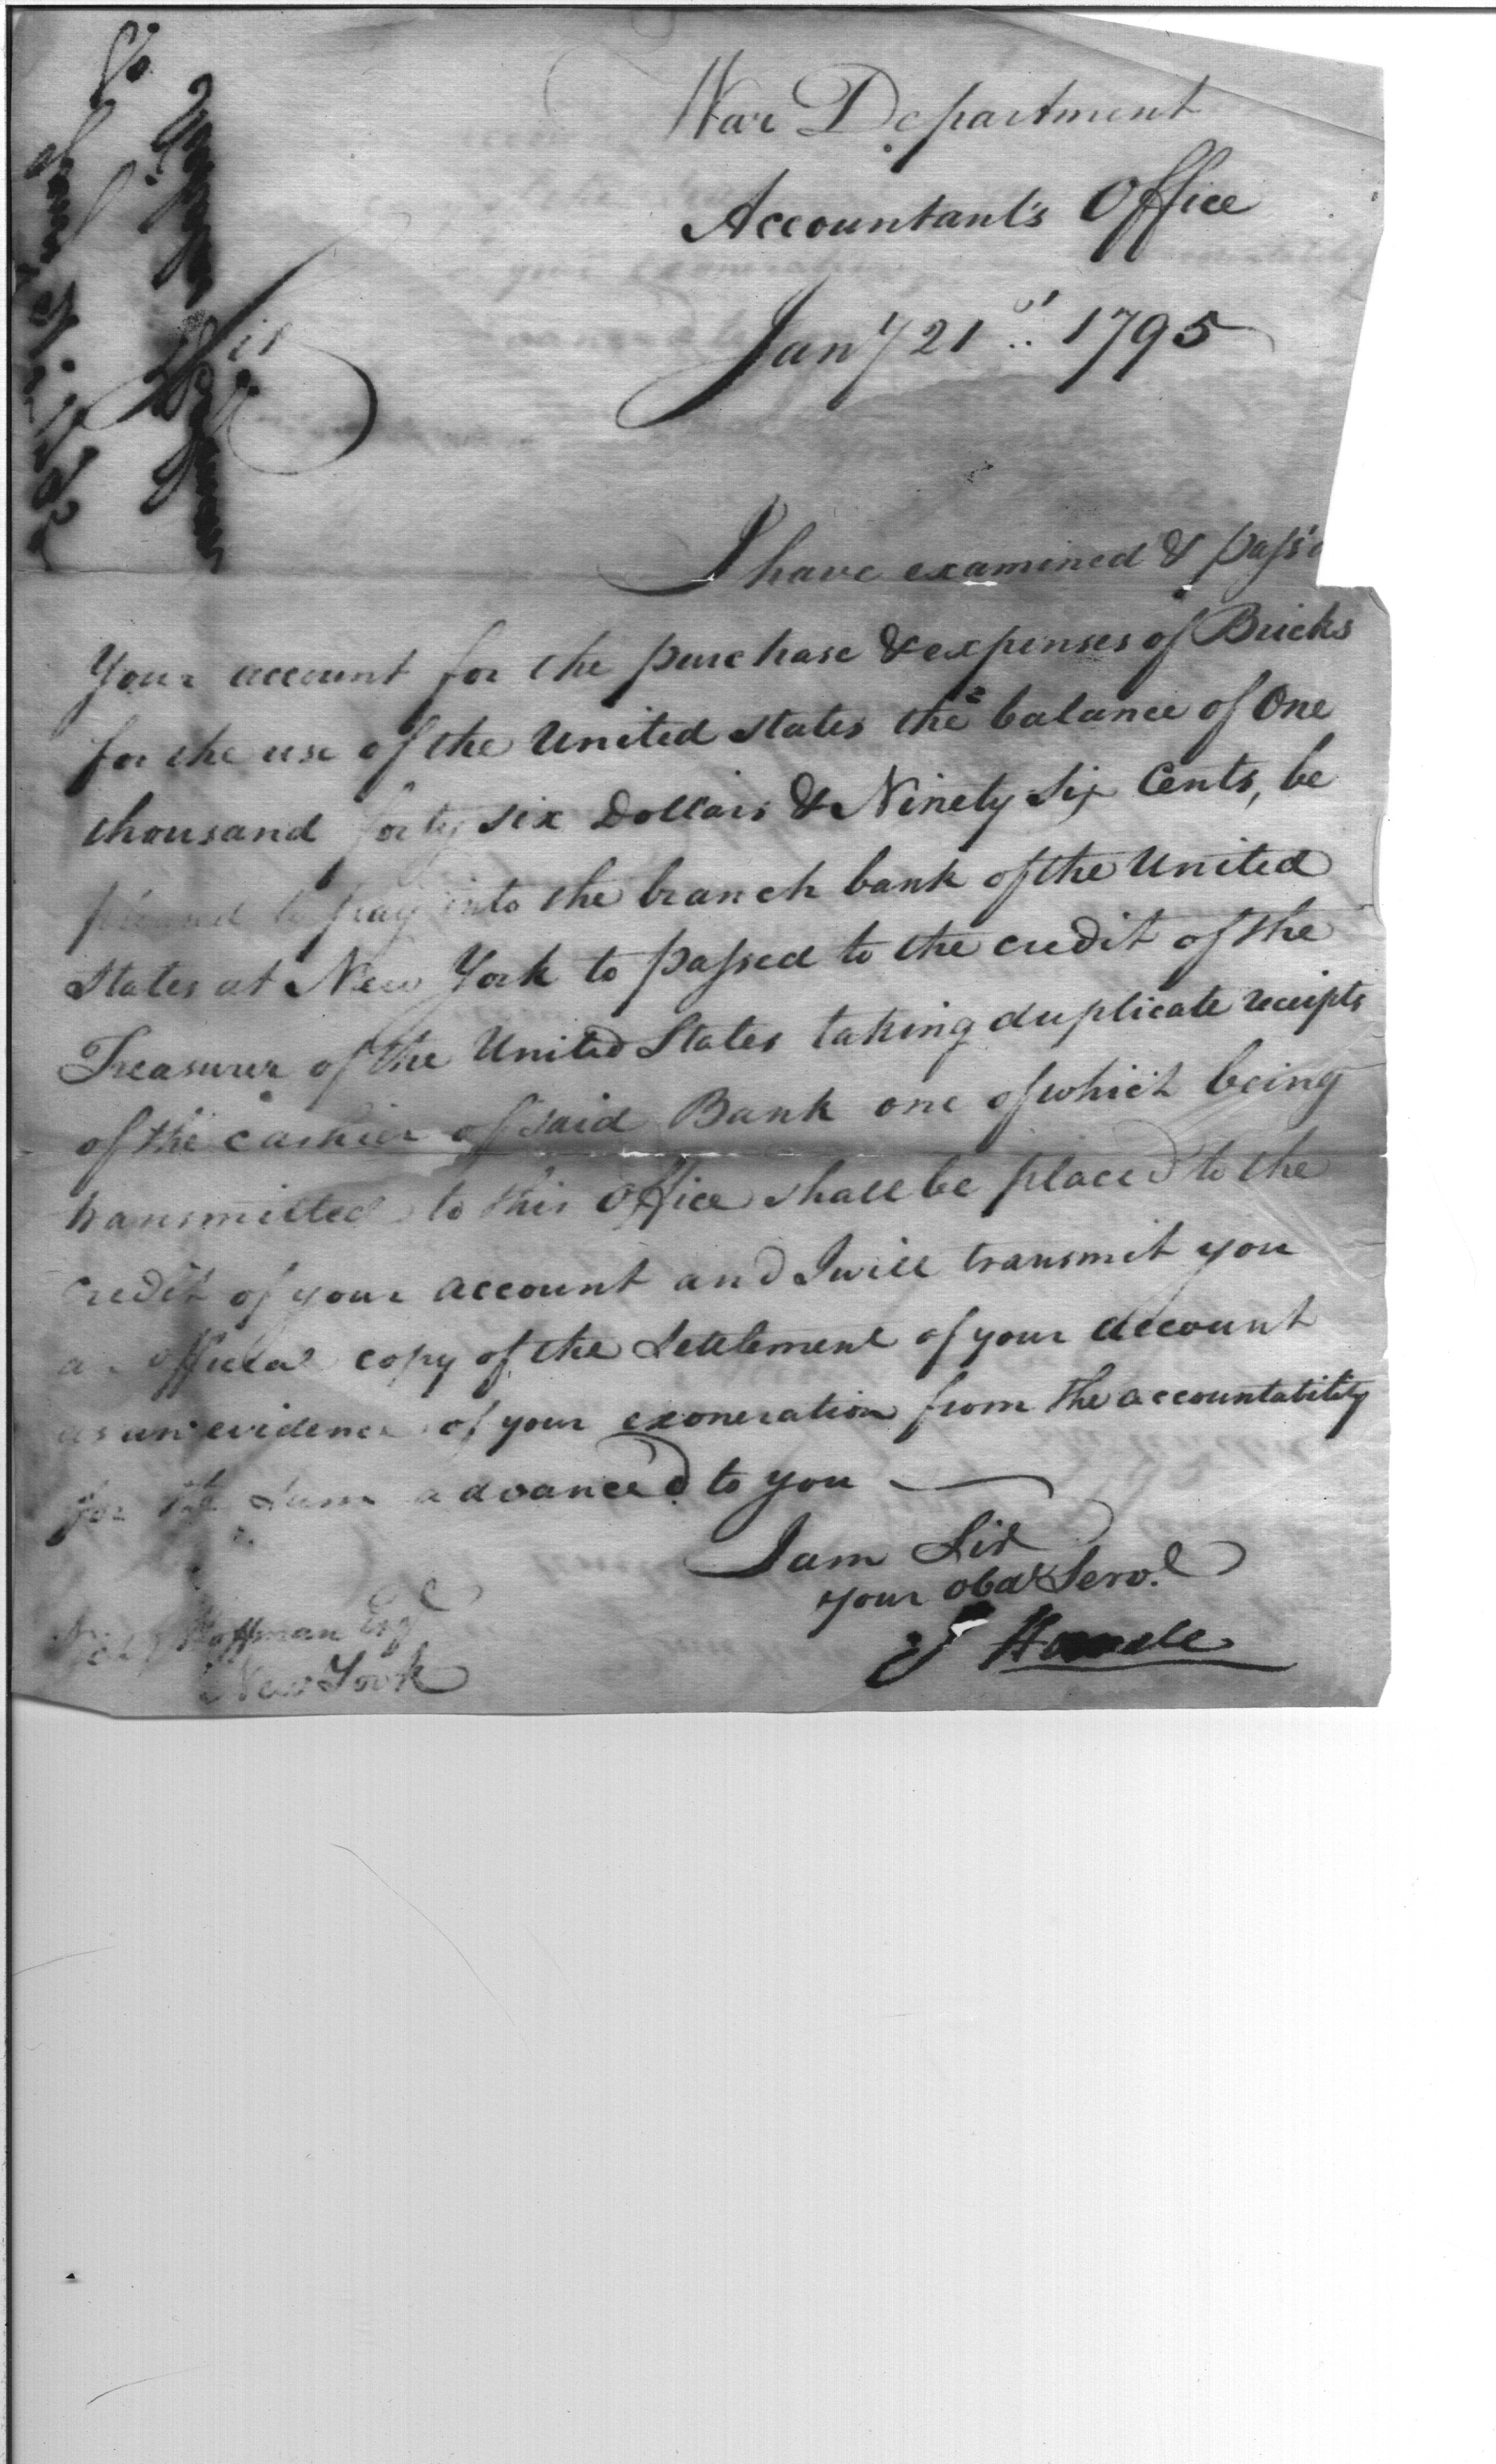 War Department
Accountant's Office
Jany 21st. 1795
Sir
I have examined & pass'd
Your account for the purchase & expenses of Bricks
for the use of the United States the balance of One
thousand forty six Dollars & Ninety Six Cents, be
pleased to pay into the branch bank of the United
States at New York to passed to the credit of the
Treasurer of the United States taking duplicate receipts
of the cashier of said Bank one of which being
transmitted to this Office shall be placed to the
credit of your account and I will transmit you
an official copy of the Settlement of your account
as an evidence of your exoneration from the accountability
for the Sum advanced to you
I am Sir
your obdt Servt.
J Howell
Hoffman Esqr
New York